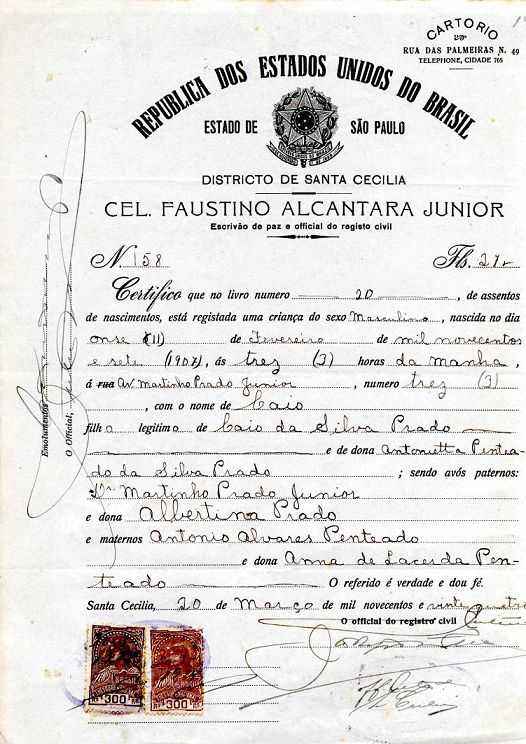 CARTORIO
RUA DAS PALMEIRAS N. 49
TELEPHONE, CIDADE 765
REPUBLICA DOS ESTADOS UNIDOS DO BRASIL
ESTADO DE SÃO PAULO
DISTRICTO DE SANTA CECILIA
CEL. FAUSTINO ALCANTARA JUNIOR
Escrivão de paz e official do registo civil
N. 158 Fls. 29v
Certifico que no livro numero 20, de assentos
de nascimentos, está registada uma criança do sexo Masculino, nascida no dia
onse (11) de Fevereiro de mil novecentos
e sete (1907), ás trez (3) horas da manhã,
á rua Av. Martinho Prado Junior, numero trez (3)
, com o nome de Caio
filho legitimo de Caio da Silva Prado
e de dona Antonietta Pentea-
do da Silva Prado ; sendo avós paternos:
Dr. Martinho Prado Junior
e dona Albertina Prado
e maternos Antonio Alvares Penteado
e dona Anna de Lacerda Pen-
teado O referido é verdade e dou fé.
Santa Cecilia, 20 de Março de mil novecentos e vinte quatro
O official do registro civil
Emolumentos
O Official,
BRASIL
300
RÉIS
300
RÉIS